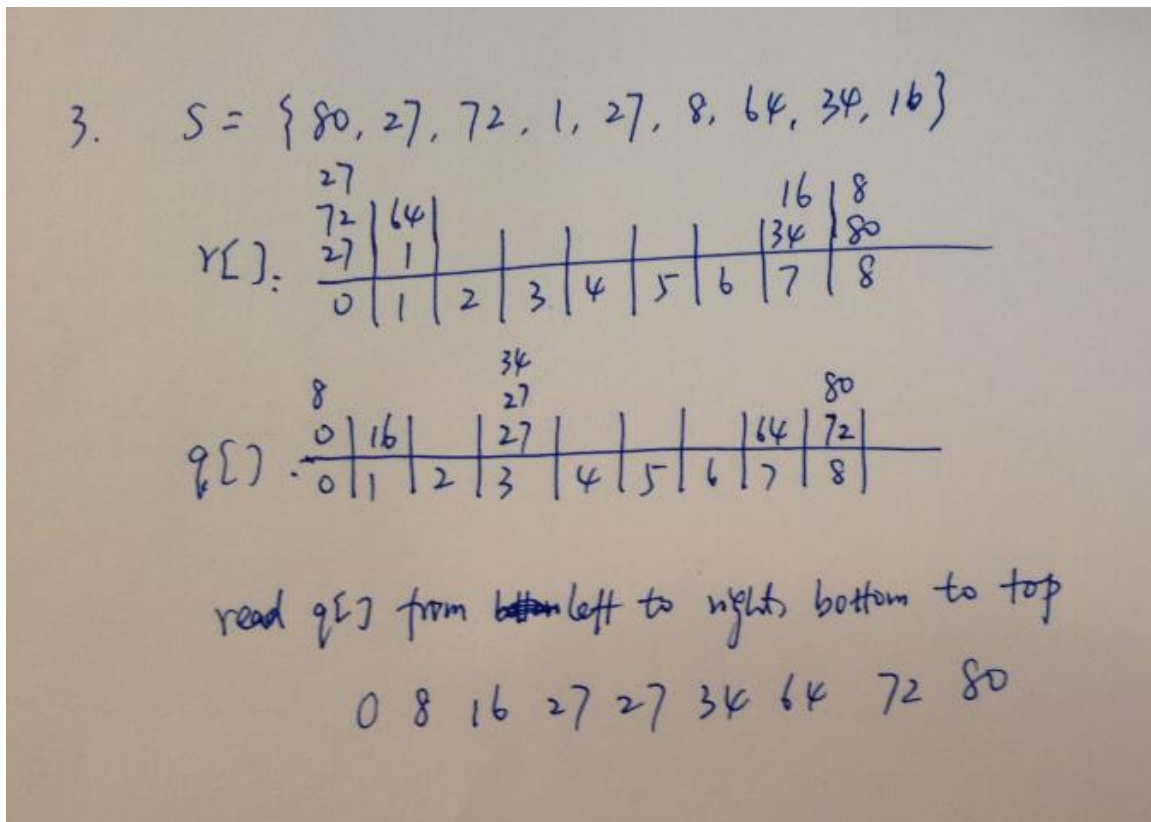 3. S = { 80, 27, 72, 1, 27, 8, 64, 34, 16}
27
72 | 64 | 16 | 8
r[]: 27 | 1 | | | | | | 34 | 80
0 | 1 | 2 | 3 | 4 | 5 | 6 | 7 | 8
34
8 27 80
0 | 16 | | 27 | | | | 64 | 72 |
q[]. 0 | 1 | 2 | 3 | 4 | 5 | 6 | 7 | 8 |
read q[] from left to right, bottom to top
0 8 16 27 27 34 64 72 80